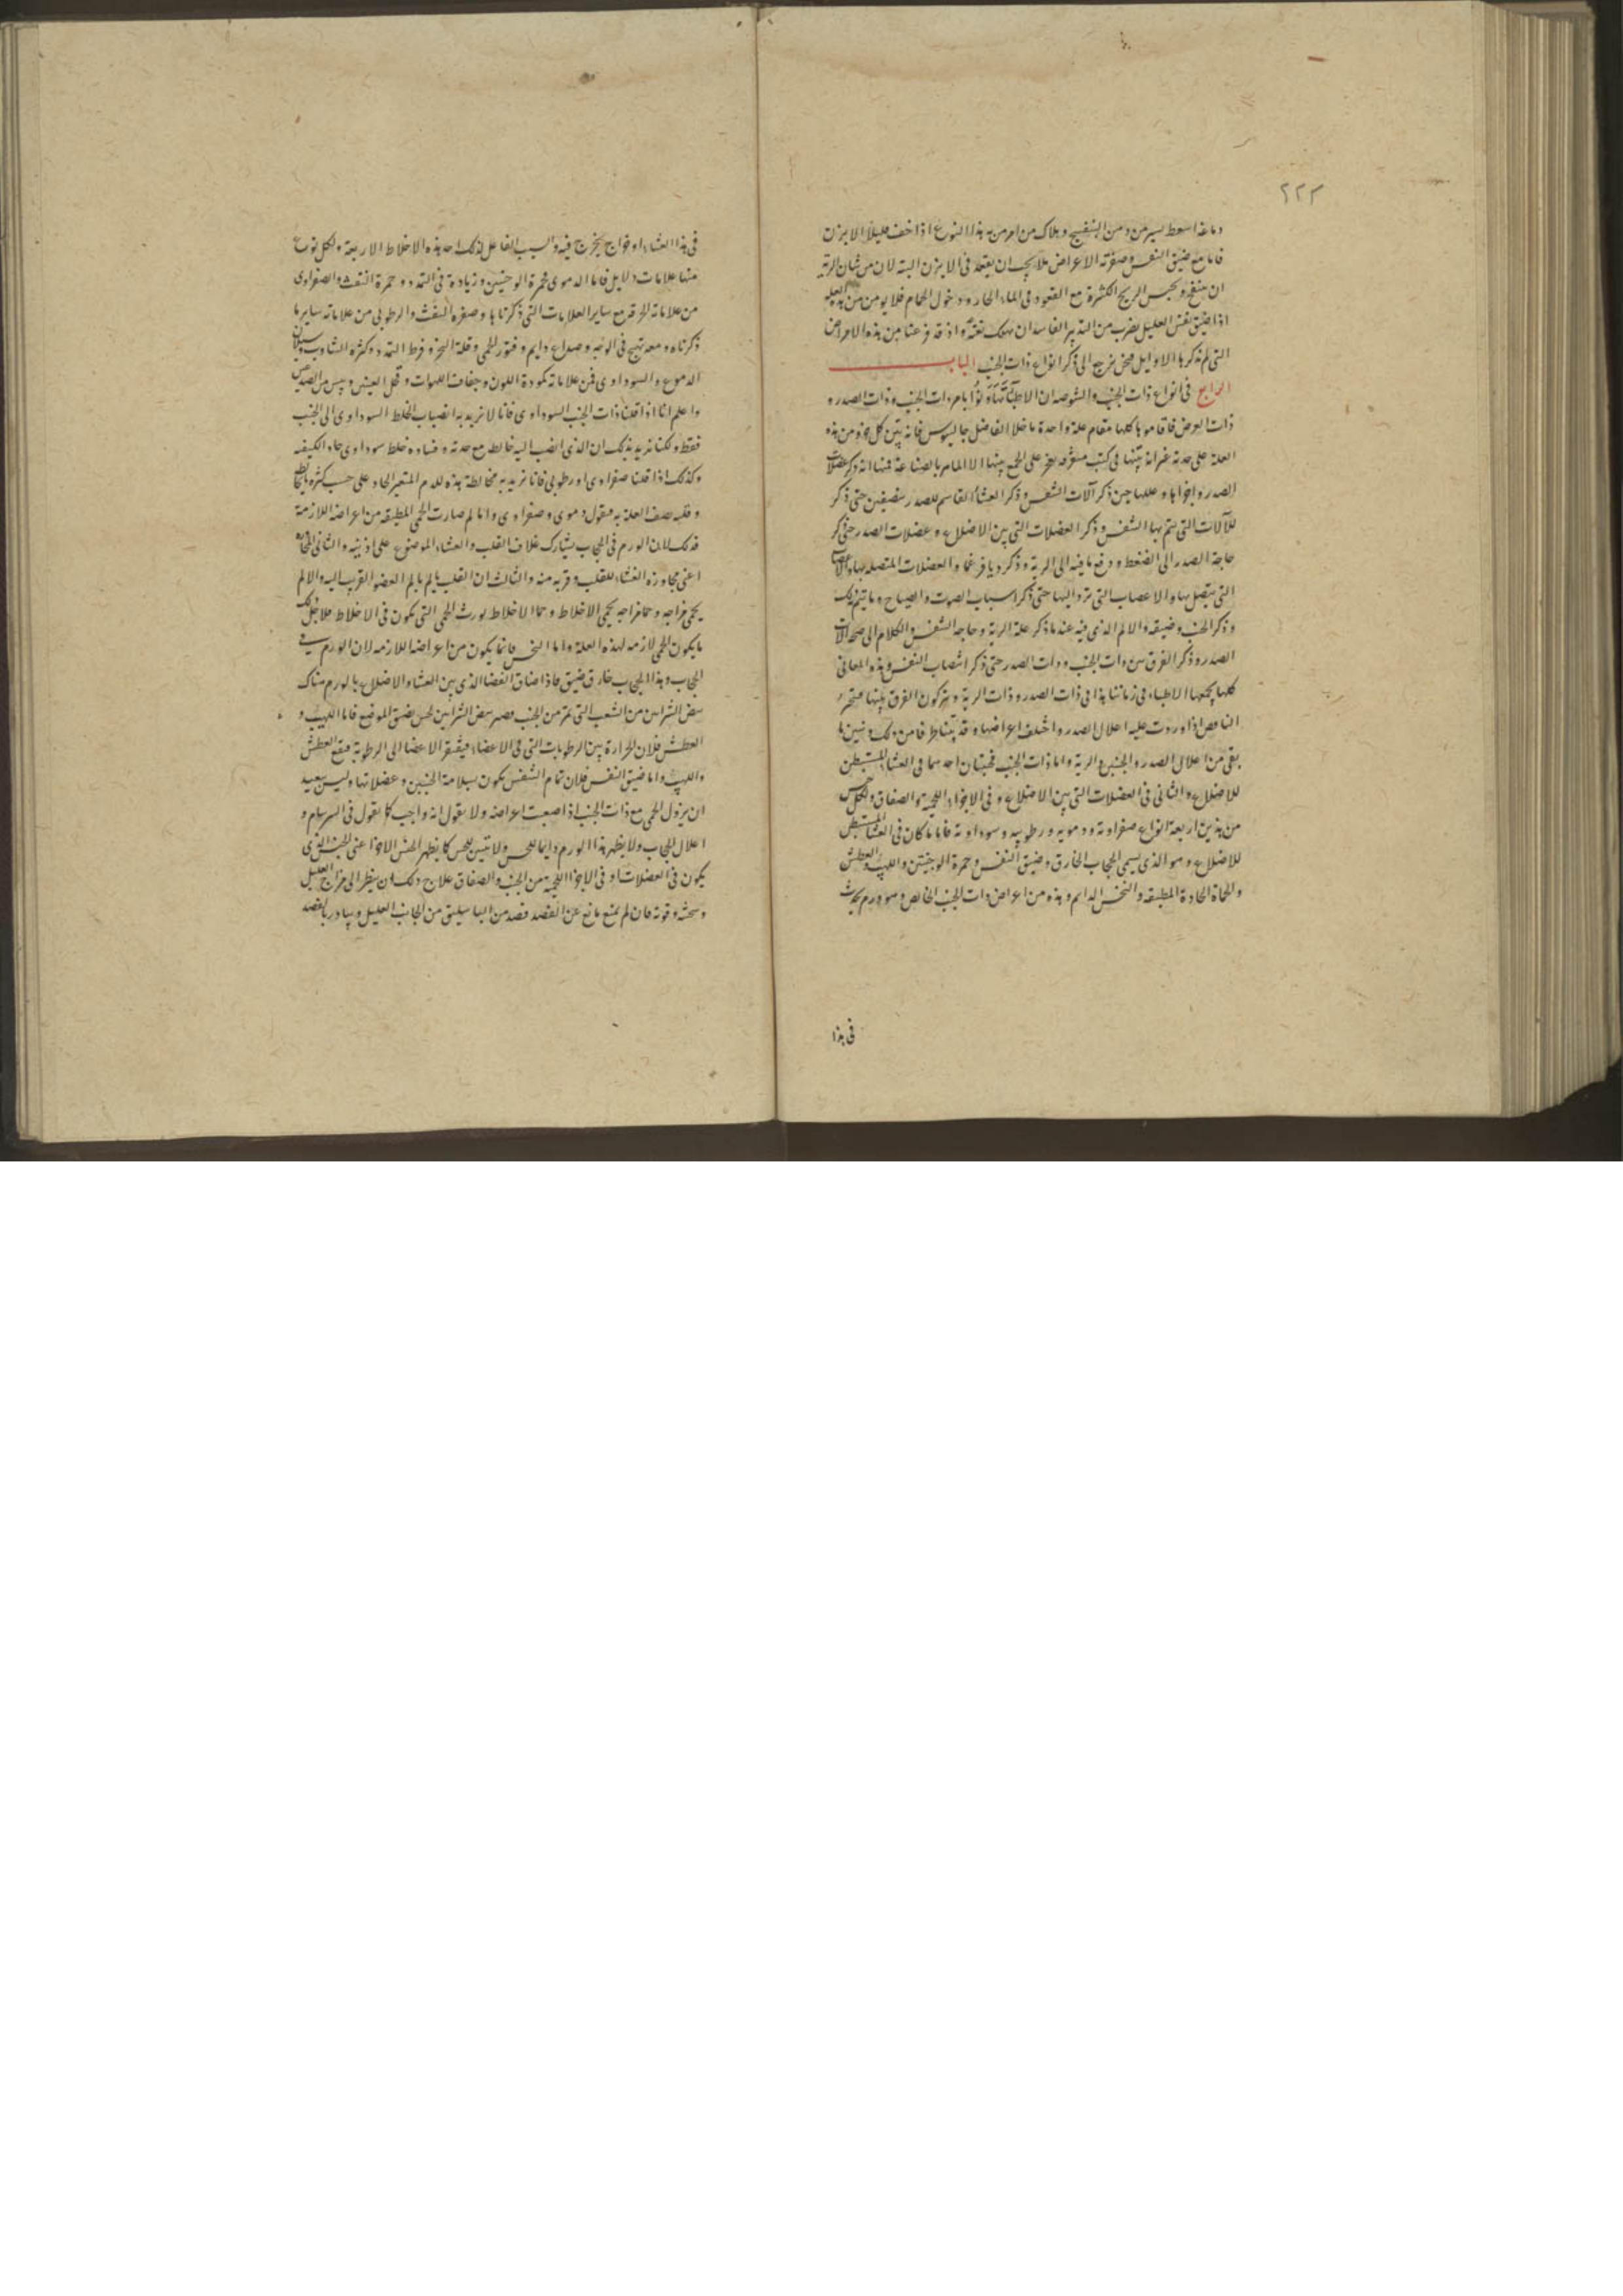 ٢٢٣
دماغه اسعط بيسير من دهن البنفسج وهلاك من امر من به هذا النوع اذا خف قليلا الابزن
فاما مع ضيق النفس وصفرته الاعراض فلا يجب ان يقعد في الابزن البته لان من شان الرية
ان تنتفخ وتحبس الريح الكثيرة مع القعود في الماء الحار ودخول الحمام فلا يومن من به العلة
اذا ضيق نفس العليل بضرب من التدبير الفاسد ان يهلك بغتة واذ قد فرغنا من هذه الامراض
التي لم يذكرها الاوايل فنحن نرجع الى ذكر انواع ذات الجنب الباب
الرابع في انواع ذات الجنب والشوصه ان الاطباء تهاونوا بامر ذات الجنب وذات الصدر و
ذات العرض فاقاموها كلها مقام علة واحدة ما خلا الفاضل جالينوس فانه بين كل جزو من هذه
العلة على حدته غير انه بينها في كتب متفرقة يعجز على الجمع بينها الا الماهر بالصناعة فمنها انه ذكر عضلات
الصدر واجزاها وعللها حين ذكر آلات التنفس وذكر الغشاء القاسم للصدر بنصفين حتى ذكر
للآلات التي يتم بها التنفس وذكر العضلات التي بين الاضلاع وعضلات الصدر حتى ذكر
حاجة الصدر الى الضغط ودفع ما فيه الى الرية وذكر ديافرغما والعضلات المتصله بها والاعصاب
التي يتصل بها والاعصاب التي ترد اليها حتى ذكر اسباب الصوت والصياح وما يتم بذلك
وذكر الجنب وضيقه والالم الذي فيه عند ما ذكر علة الرية وحاجة التنفس والكلام الى صحة آلات
الصدر وذكر الفرق بين ذات الجنب وذات الصدر حتى ذكر انتصاب النفس وهذه المعاني
كلها يجمعها الاطباء في زماننا هذا في ذات الصدر وذات الرية ويتركون الفرق بينها فيتحير
الناقص اذا وردت عليه اعلال الصدر واختلف اعراضها وقد بينا طرفا من ذلك ونبين ما
بقي من اعلال الصدر والجنبين والرية واما ذات الجنب فجنسان احدهما في الغشاء المستبطن
للاضلاع والثاني في العضلات التي بين الاضلاع وفي الاجزاء اللحمية والصفاق ولكل جنس
من هذين اربعة انواع صفراوية ودموية ورطوبية وسوداوية فاما ما كان في الغشاء المستبطن
للاضلاع وهو الذي يسمى الحجاب الخارق وضيق النفس وحمرة الوجنتين واللهيب والعطش
والحماة الحادة المطبقه والنخس الدايم وهذه من اعراض ذات الجنب الخالص وهو ورم يحدث
في هذا
في هذا الغشاء او خراج يخرج فيه والسبب الفاعل لذلك احد هذه الاخلاط الاربعة ولكل نوع
منها علامات دلايل فاما الدموي فحمرة الوجنتين وزيادة في التمدد وحمرة النفث والصفراوي
من علاماته الحرقه مع ساير العلامات التي ذكرناها وصفره النفث والرطوبي من علاماته ساير ما
ذكرناه ومعه تهيج في الوجه وصداع دايم وفتور الحمى وقلة النخز وفرط التمدد وكثرة التثاوب وسيلان
الدموع والسوداوي فمن علاماته كمودة اللون وجفاف اللهوات وقحل العينين ويبس من الصدغين
واعلم انا اذا قلنا ذات الجنب السوداوي فانا لا نريد به انصباب الخلط السوداوي الى الجنب
فقط ولكنا نريد بذلك ان الذي انصب اليه خالطه مع حدته وفساده خلط سوداوي حاد الكيفيه
وكذلك اذا قلنا صفراوي او رطوبي فانا نريد به مخالطة هذه للدم المتغير الحاد على حسب كثرة ما يخالط
وقلبه يصف العلة به فيقول دموي وصفراوي وانما لم صارت الحمى المطبقه من اعراضه اللازمة
فذلك لان الورم في الحجاب يشارك غلاف القلب والغشاء الموضوع على اذنيه والثاني المجاورة
اعني مجاورة الغشاء للقلب وقربه منه والثالث ان القلب يالم بالم العضو القريب اليه والالم
يحمي مزاجه وحما مزاجه يحمي الاخلاط وحما الاخلاط يورث الحمى التي يكون في الاخلاط فلاجل ذلك
ما يكون الحمى لازمه لهذه العلة واما النخس فانما يكون من اعراضه اللازمه لان الورم في
الحجاب وهذا الحجاب خارق ضيق فاذا ضاق الفضا الذي بين الغشاء والاضلاع بالورم هناك
نبض الشرايين من الشعب التي تمر من الجنب فيصير نبض الشرايين نخس لضيق الموضع فاما اللهيب و
العطش فلان الحرارة بين الرطوبات التي في الاعضاء فيفتقر الاعضا الى الرطوبة فيقع العطش
واللهيب واما ضيق النفس فلان تمام التنفس يكون بسلامة الجنبين وعضلاتها وليس ببعيد
ان يزول الحمى مع ذات الجنب اذا صعبت اعراضه ولا يقول انه واجب كما نقول في السرسام و
اعلال الحجاب ولا يظهر هذا الورم دايما للحس ولا يتبين للحس كما يظهر الجنس الاخر اعني الجنس الذي
يكون في العضلات او في الاجزا اللحمية من الجنب والصفاق علاج ذلك ان ينظر الى مزاج العليل
وسحنته وقوته فان لم يمنع مانع عن الفصد فصد من الباسليق من الجانب العليل ويبادر بالفصد